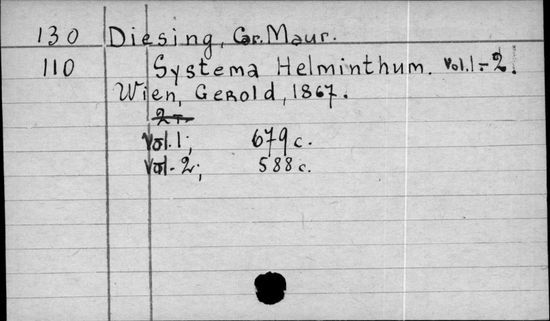 130 Diesing, Car. Maur.
110 Systema Helminthum. Vol. 1-2.
Wien, Gerold, 1867.
2 т.
Vol. 1; 679 c.
Vol. 2; 588 c.